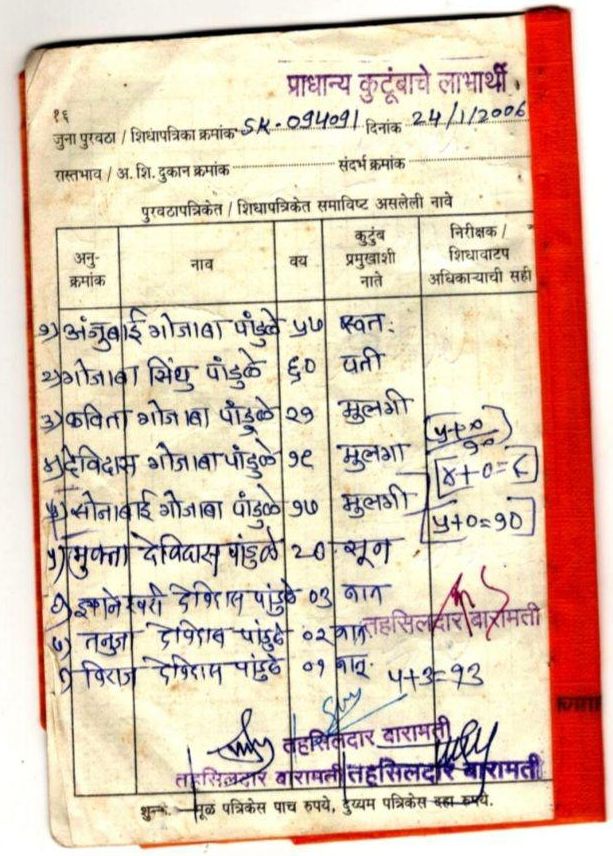 प्राधान्य कुटूंबाचे लाभार्थी.
१६
जुना पुरवठा / शिधापत्रिका क्रमांक SK-094091 दिनांक 24/1/2006
रास्तभाव / अ. शि. दुकान क्रमांक संदर्भ क्रमांक
पुरवठापत्रिकेत / शिधापत्रिकेत समाविष्ट असलेली नावे
अनु-क्रमांक नाव वय कुटुंब प्रमुखाशी नाते निरीक्षक / शिधावाटप अधिकाऱ्याची सही
१) अंजुबाई गोजाबा पांडुळे ५७ स्वत:
२) गोजाबा सिंधु पांडुळे ६० पती
३) कविता गोजाबा पांडुळे २१ मुलगी
४) देविदास गोजाबा पांडुळे १९ मुलगा
५) सोनाबाई गोजाबा पांडुळे १७ मुलगी ५+०=१०
५) मुक्ता देविदास पांडुळे २० सून
देविदास पांडुळे ०३ नात
तहसिलदार बारामती
७) तनुजा देविदास पांडुळे ०२ नात
विराज देविदास पांडुळे ०१ नातू
तहसिलदार बारामती
तहसिलदार बारामती तहसिलदार बारामती
शुल्क मूळ पत्रिकेस पाच रुपये, दुय्यम पत्रिकेस दहा रुपये.